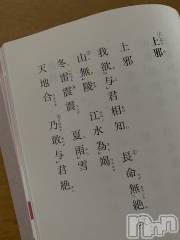 上邪
上邪
我欲与君相知
長命無絶
山無陵
江水為竭
冬雷震震
夏雨雪
天地合
乃敢与君絶